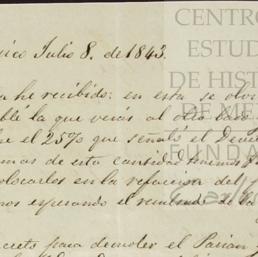 xico Julio 8. de 1843.
a he recibido: en esta se olvi
blé la que verás al otro lado
e el 25% que señaló el Decre
mas de esta cantidad tenemos
olocarlos en la refaccion del
nos esperando el remitente de la
creto para demoler el Parian
CENTRO
ESTUD
DE HIST
DE ME
FUNDA